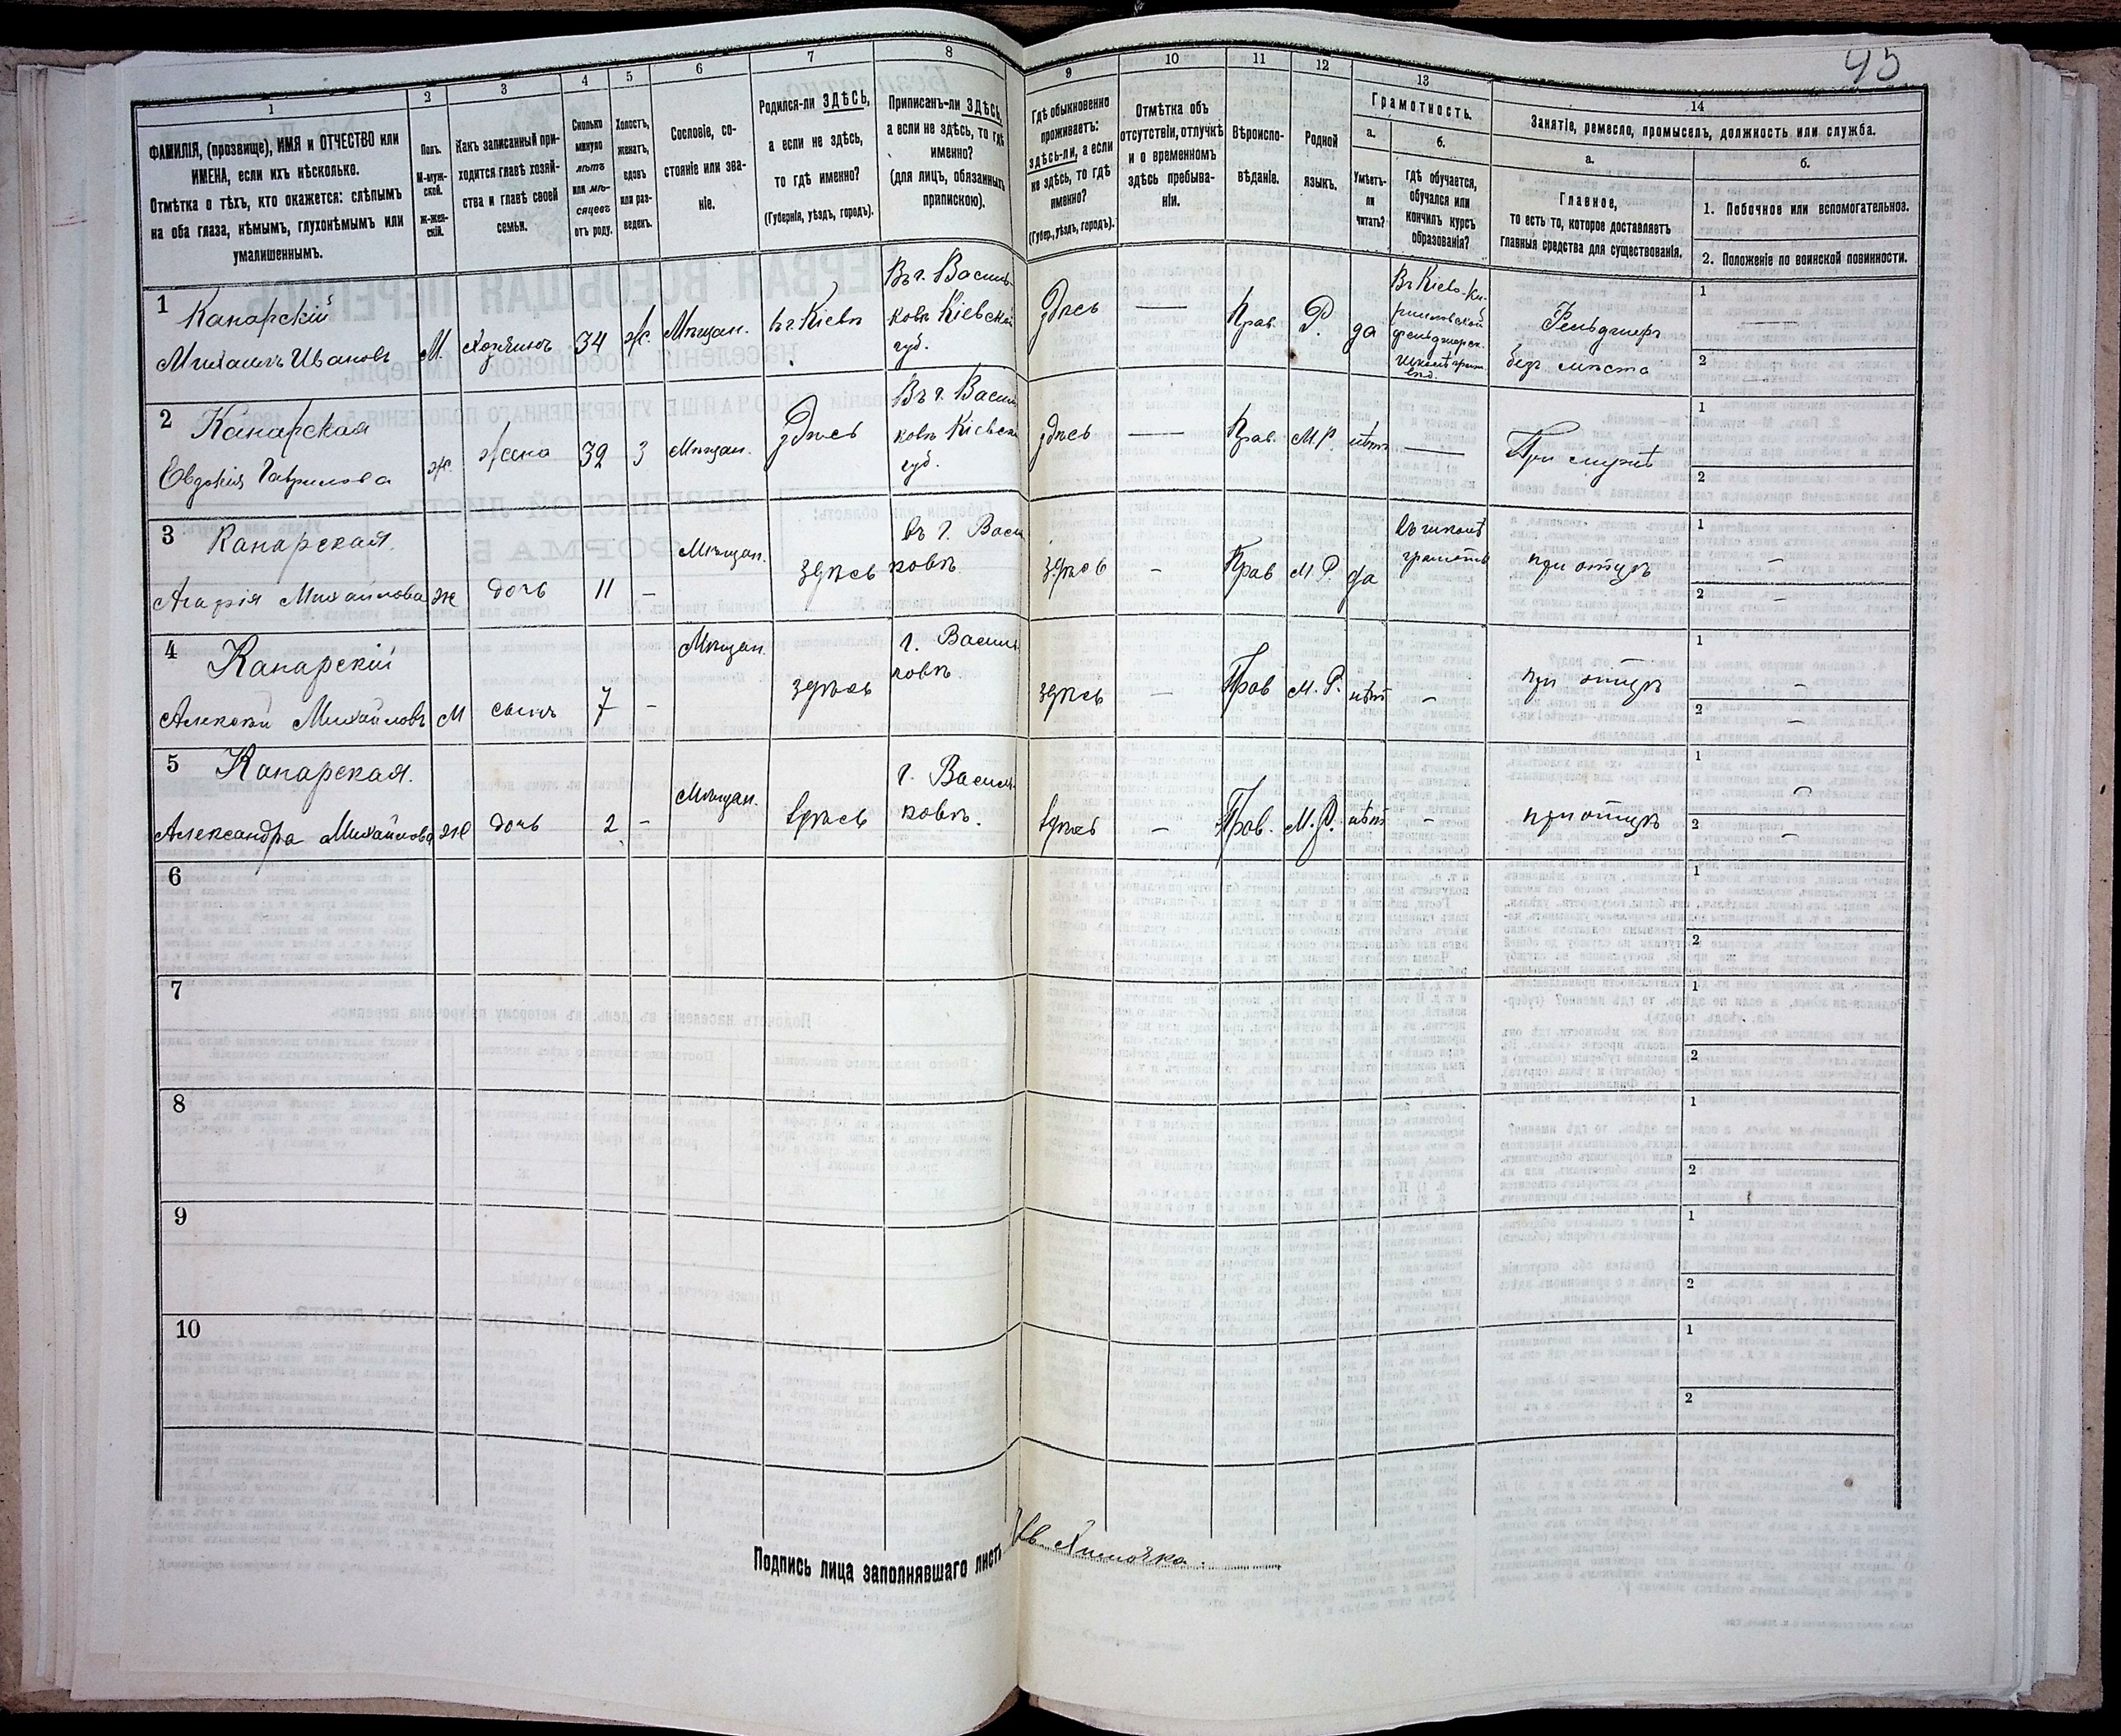 95
1
2
3
4
5
6
7
8
9
10
11
12
13
14
ФАМИЛІЯ, (прозвище), ИМЯ и ОТЧЕСТВО или
ИМЕНА, если ихъ нѣсколько.
Отмѣтка о тѣхъ, кто окажется: слѣпымъ
на оба глаза, нѣмымъ, глухонѣмымъ или
умалишеннымъ.
Полъ.
М-муж-
ской.
Ж-жен-
скій.
Какъ записанный при-
ходится главѣ хозяй-
ства и главѣ своей
семьи.
Сколько
минуло
лѣтъ
или мѣ-
сяцевъ
отъ роду.
Холостъ,
женатъ,
вдовъ
или раз-
веденъ.
Сословіе, со-
стояніе или зва-
ніе.
Родился-ли ЗДѢСЬ,
а если не здѣсь,
то гдѣ именно?
(Губернія, уѣздъ, городъ).
Приписанъ-ли ЗДѢСЬ,
а если не здѣсь, то гдѣ
именно?
(для лицъ, обязанныхъ
припискою).
Гдѣ обыкновенно
проживаетъ:
здѣсь-ли, а если
не здѣсь, то гдѣ
именно?
(Губер., уѣздъ, городъ).
Отмѣтка объ
отсутствіи, отлучкѣ
и о временномъ
здѣсь пребыва-
ніи.
Вѣроиспо-
вѣданіе.
Родной
языкъ.
Грамотность.
а.
Умѣетъ-
ли
читать?
б.
гдѣ обучается,
обучался или
кончилъ курсъ
образованія?
Занятіе, ремесло, промыселъ, должность или служба.
а.
Главное,
то есть то, которое доставляетъ
главныя средства для существованія.
б.
1. Побочное или вспомогательное.
2. Положеніе по воинской повинности.
1
Канарскій
Михаилъ Ивановъ
М.
Хозяинъ
34
ж.
Мѣщан.
в г. Кіевѣ
Въ г. Василь-
ковѣ Кіевской
губ.
здѣсь
—
Прав.
Р.
да
Въ Кіево-Ки-
рилловской
фельдшерск.
школѣ
Фельдшеръ
безъ мѣста
1
—
2
—
2
Канарская
Евдокія Гаврилова
ж.
жена
32
з
Мѣщан.
здѣсь
Въ г. Василь
ковѣ Кіевск
губ.
здѣсь
—
Прав.
М.Р.
нѣтъ
—
При мужѣ
1
2
3
Канарская.
Агафія Михайлова
ж
дочь
11
–
Мѣщан.
здѣсь
въ г. Васи
ковѣ
здѣсь
–
Прав
М.Р.
да
въ школѣ
грамоты
при отцѣ
1
–
2
–
4
Канарскій
Алексѣй Михайловъ
М
сынъ
7
–
Мѣщан.
здѣсь
г. Василь
ковѣ
здѣсь
–
Прав
М. Р.
нѣт
–
при отцѣ
1
–
2
–
5
Канарская.
Александра Михайлова
ж
дочь
2
–
Мѣщан.
здѣсь
г. Василь-
ковѣ.
здѣсь
–
Прав.
М.Р.
нѣт
–
при отцѣ
1
–
2
–
6
1
2
7
1
2
8
1
2
9
1
2
10
1
2
Подпись лица заполнявшаго листъ